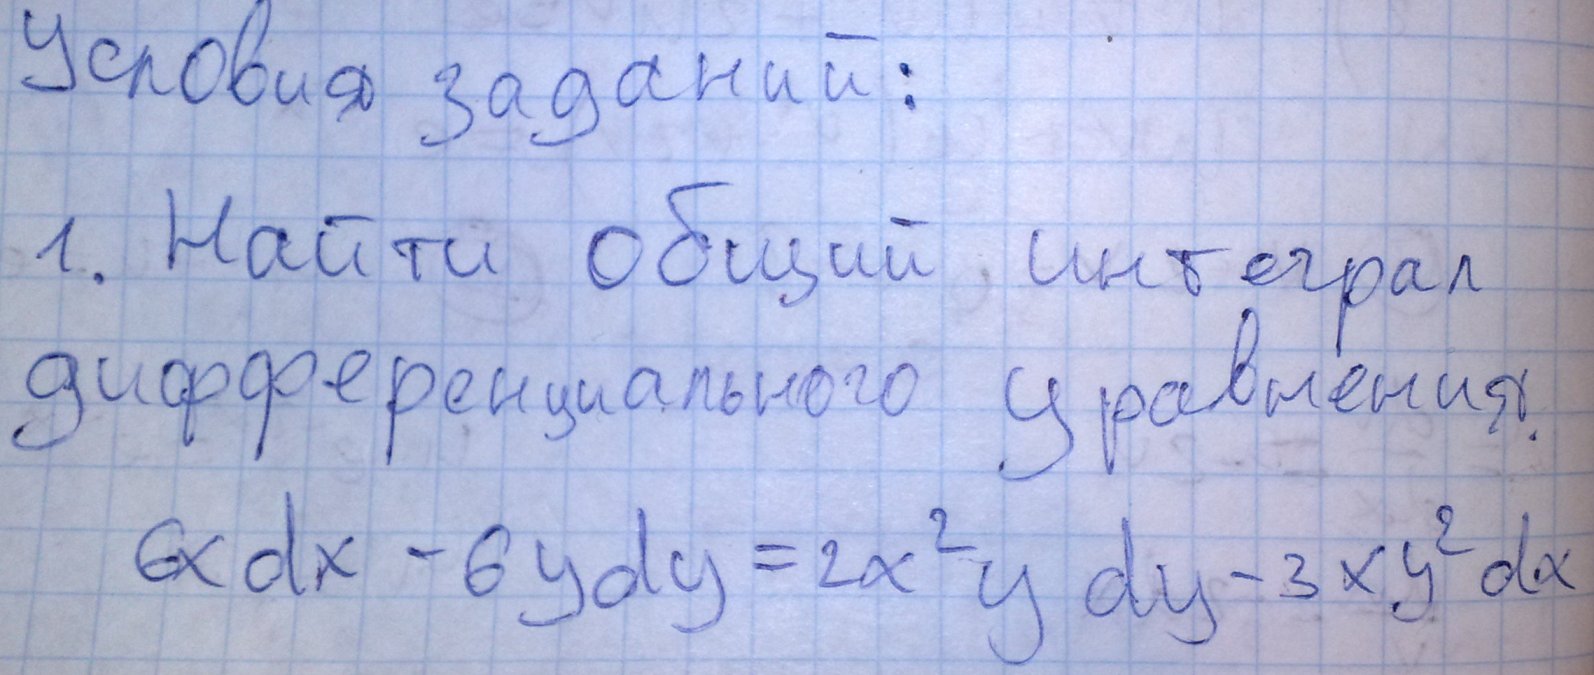 Условия заданий:
1. Найти общий интеграл
дифференциального уравнения.
6xdx - 6ydy = 2x²y dy - 3xy²dx